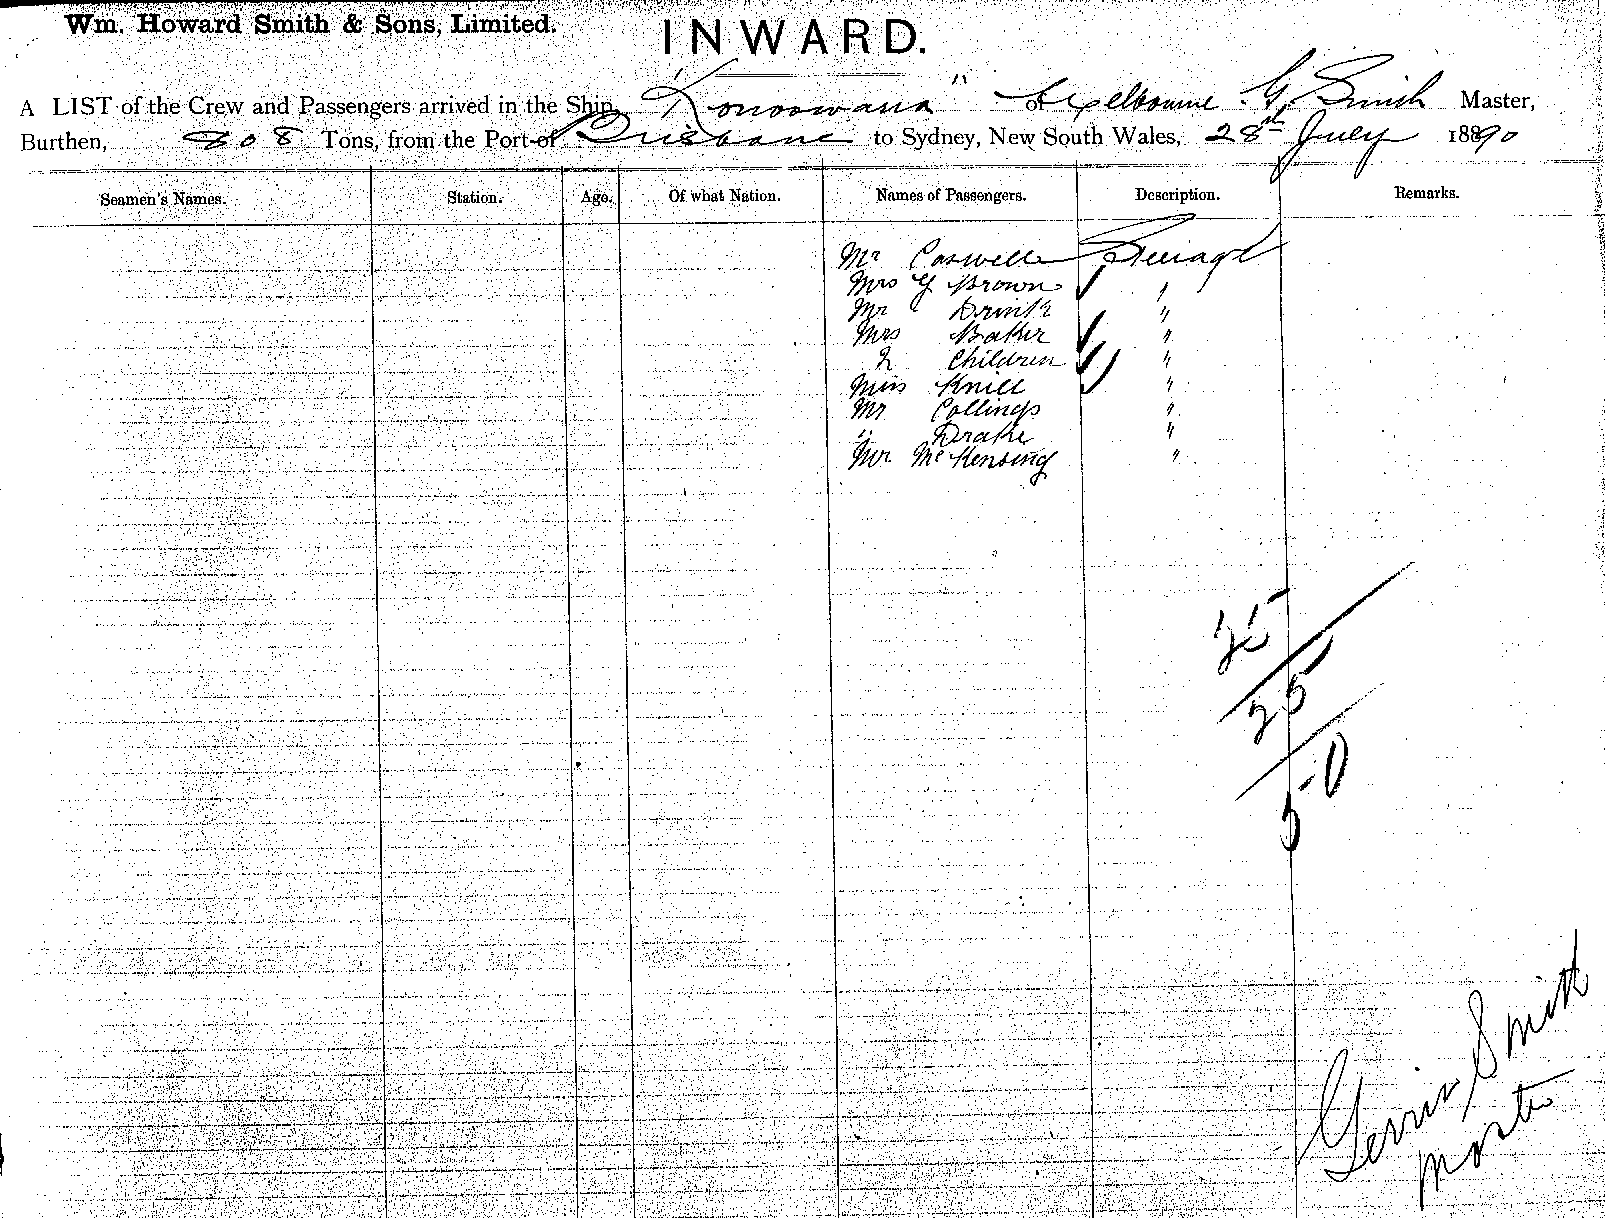 Wm. Howard Smith & Sons, Limited.
INWARD.
A LIST of the Crew and Passengers arrived in the Ship "Konoowarra" of Melbourne G. Smith Master,
Burthen, 808 Tons, from the Port of Brisbane to Sydney, New South Wales, 28th July 1890
Seamen's Names. Station. Age. Of what Nation. Names of Passengers. Description. Remarks.
Mr Caswell
Mrs G Brown "
Mr Brink "
Mrs Baker "
2 Children "
Miss Knill "
Mr Collings "
" Drake "
Mr "
25
25
50
Smith
Master